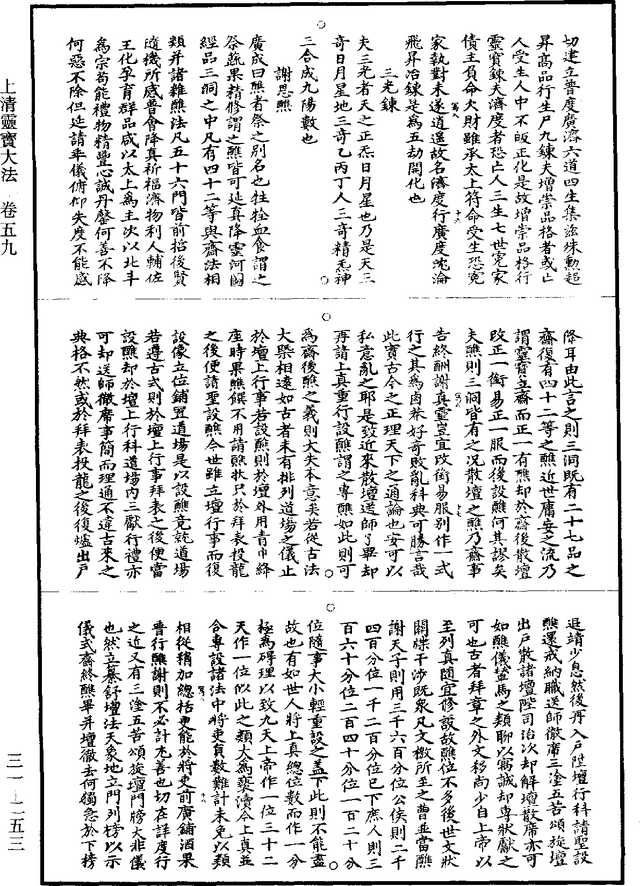 切建立普度廣濟六道四生集茲殊勳超
昇高品行生尸九鍊夫增崇品格者或亡
人受生人中不皈正化是故增崇品格行
靈寶鍊夫濟度者恐亡人三生七世寃家
債主負命欠財雖承太上符命受生恐寃
家執對未遂逍遥故名濟度行廣度沈淪
飛昇冶鍊是為五劫開化也
三光鍊
夫三光者天之正炁日月星也乃是天三
奇日月星地三奇乙丙丁人三奇精炁神
三合成九陽數也
謝恩醮
廣成曰醮者祭之別名也牲牷血食謂之
祭蔬果精修謂之醮皆可延真降靈河圖
經品三洞之中凡有四十二等與齋法相
類并諸雜醮法凡五十六門皆前招後賢
隨機所感普會降真祈福濟物利人輔佐
王化孕育群品咸以太上為主次以北斗
為宗苟能禮物精豐心誠丹懿何善不降
何惡不除但延請乖儀俯仰失度不能感
降耳由此言之則三洞既有二十七品之
齋復有四十二等之醮近世庸妄之流乃
謂靈寶立齋而正一有醮却於齋後散壇
改正一銜易正一服而後設醮何其謬矣
夫醮則三洞皆有之况散壇之醮乃齋事
告終酬謝真靈豈宜改銜易服别作一式
行之其為鹵莽好奇敗亂科典可勝言哉
此實古今之正理天下之通論也安可以
私意亂之耶是致近來散壇送師了畢却
再請上真重行設醮謂之專醮如此則可
為齋後醮之義則大失本意矣若從古法
大槩相遠如古者未有排列道場之儀止
於壇上行事若設醮則於壇外用青巾絳
座時果醮饌不用請醮狀只於拜表投龍
之後便請聖設醮今世雖立壇行事而復
設像立位鋪置道場是以設醮竟就道場
若遵古式則於壇上行事拜表之後便當
設醮却於壇上行科道場内三獻行禮亦
可却送師徹席事簡而理通不違古來之
典格不然或於拜表投龍之後復爐出戶
退靖少息然後再入戶陞壇行科請聖設
醮還戒納職送師徹席三塗五苦頌旋壇
出戶散諸壇陛司治次却解壇散席亦可
如醮儀盤馬之類聊以寫誠却專狀獻之
可也古者拜章之外文移尚少自上帝以
至列真隨宜修設故醮位不多後世文狀
關牒干涉既衆凡文檄所至之曹並當醮
謝天子則用三千六百分位公侯則二千
四百分位一千二百分位已下庶人則三
百六十分位二百四十分位一百二十分
位隨事大小輕重設之蓋下此則不能盡
故也有如世人將上真總位數而作一分
極為碍理以致九天上帝作一位三十二
天作一位似此之類大為褻瀆今上真並
合專設諸法中將吏員數難計未免以類
相從稍加總括更能於將吏前廣鋪酒果
晋行醮謝則不必計尤善也切在詳度行
之近又有三塗五苦頌旋壇門牓大非儀
也然立纂舒壇法天象地立門列榜以示
儀式齋終醮畢并壇徹去何獨急於下榜
上清靈寶大法 卷五九
三一—二五三